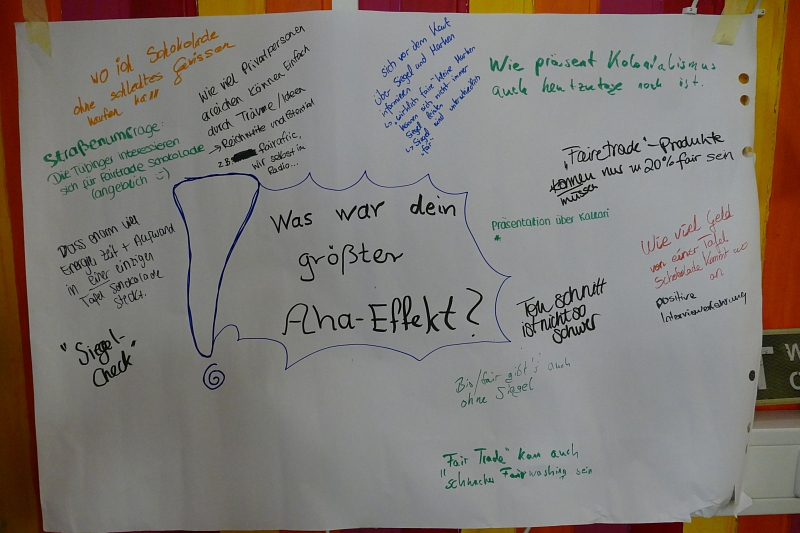 wo ich Schokolade
ohne schlechtes Gewissen
kaufen kann
wie viel Privatpersonen
erreichen können Einfach
durch Träume/Ideen
→ Reichweite und Potential
z.B. fairafric,
wir selbst im
Radio...
sich vor dem Kauf
über Siegel und Marken
informieren
↳ "wirklich faire" kleine Marken
können sich nicht immer
Siegel leisten
↳ Siegel sind unterschiedlich
"fair"
Wie präsent Kolonialismus
auch heutzutage noch ist.
Straßenumfrage:
Die Tübinger interessieren
sich für Fairtrade Schokolade
(angeblich :))
"Fairetrade"-Produkte
können nur zu 20% fair sein
müssen
Dass enorm viel
Energie, Zeit + Aufwand
in einer einzigen
Tafel Schokolade
steckt.
Was war dein
größter
Aha-Effekt?
Präsentation über Kakaori
*
Wie viel Geld
von einer Tafel
Schokolade kommt wo
an
positive
Interviewerfahrung
Ton schnitt
ist nicht so
schwer
"Siegel-
Check"
Bio/fair gibt's auch
ohne Siegel
"Fair Trade" kann auch
schwaches Fairwashing sein